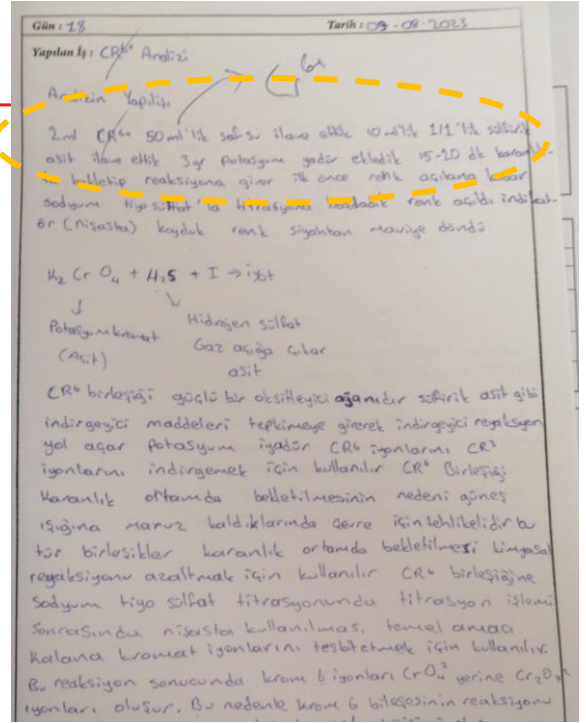 Gün : 18 Tarih : 09-08-2023
Yapılan İş : CR⁶⁺ Analizi
Cr 6+
Analizin Yapılışı
2ml CR⁶⁺ 50 ml'lik saf su ilave ettik 10 ml'lik 1/1'lik sülfirik
asit ilave ettik 3gr Potasyum yadür ekledik 15-20 dk karanlık
bekletip reaksiyona girer ilk önce renk açılana kadar
sodyum tiyo sülfat'la titrasyona başladık renk açıldı indikat-
ör (nişasta) koyduk renk siyahtan maviye döndü
K₂ Cr O₄ + H₂S + I → iyot
Potasyum kromat Hidrojen sülfat
(Asit) Gaz açığa çıkar
asit
CR⁶ birleşiği güçlü bir oksitleyici ajanıdır sülfirik asit gibi
indirgeyici maddeleri tepkimeye girerek indirgeyici reyaksiyon
yol açar Potasyum iyadür CR⁶ iyonlarını CR³
iyonlarını indirgemek için kullanılır CR⁶ Birleşiği
Karanlık ortamda bekletilmesinin nedeni güneş
ışığına maruz kaldıklarında çevre için tehlikelidir bu
tür birleşikler karanlık ortamda bekletilmesi kimyasal
reyaksiyonu azaltmak için kullanılır CR⁶ birleşiğine
Sodyum tiyo sülfat titrasyonunda titrasyon işlemi
Sonrasında nişasta kullanılması temel amacı
Kalana kromat iyonlarını tesbitetmek için kullanılır
Bu reaksiyon sonucunda krom 6 iyonları CrO₄² yerine Cr₂O₇²
iyonları oluşur. Bu nedenle krom 6 bileşesinin reaksiyonu